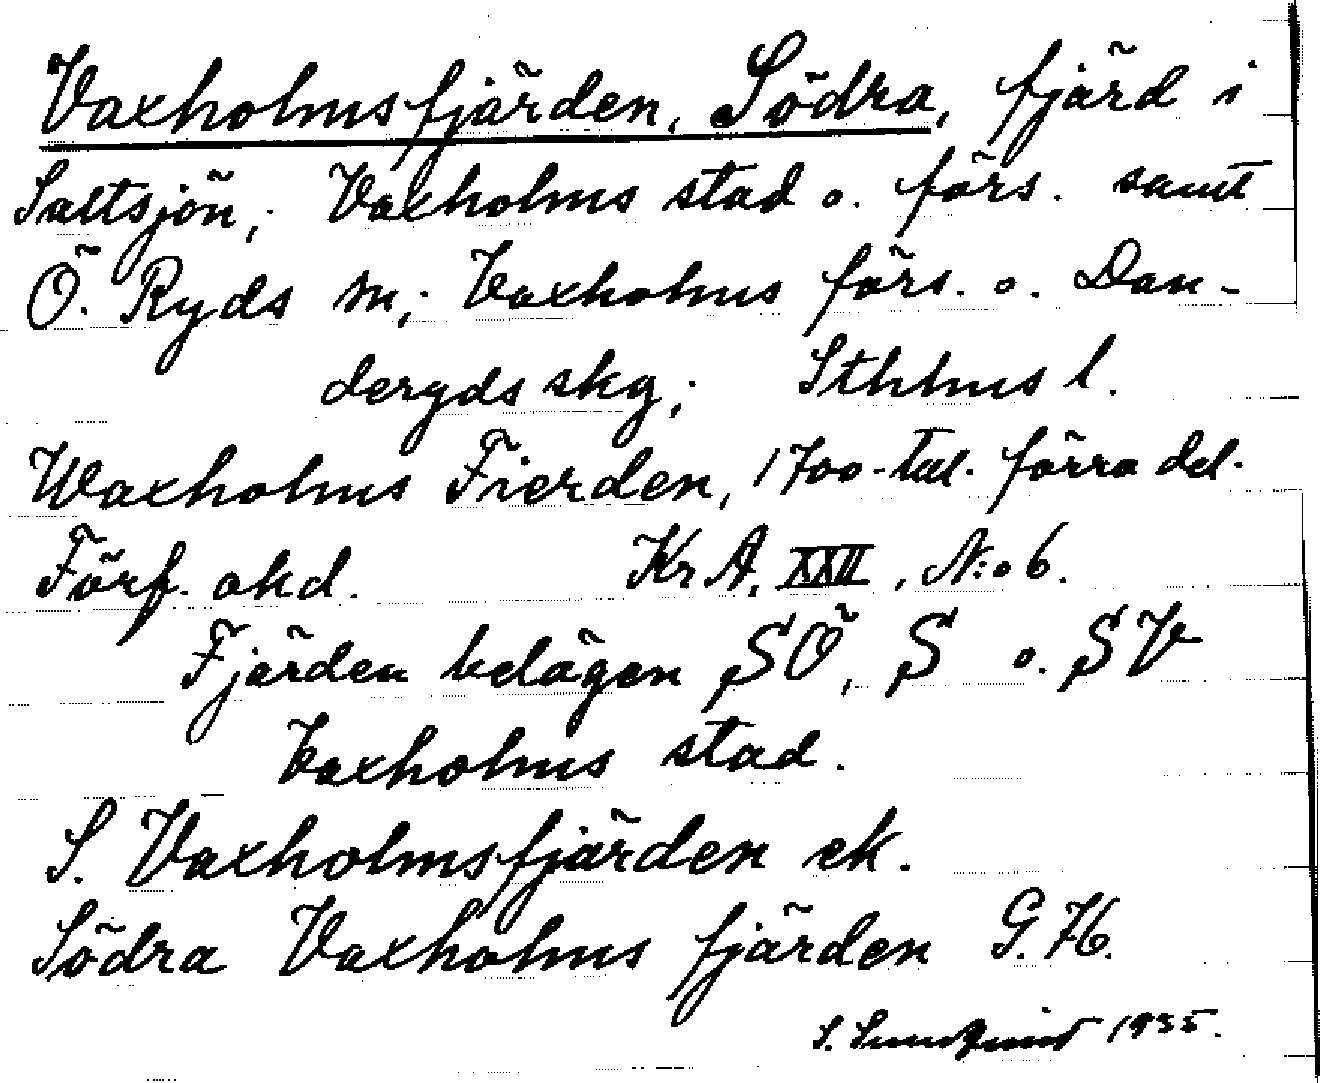 Vaxholmsfjärden, Södra, fjärd i
Saltsjön; Vaxholms stad o. förs. samt
Ö. Ryds sn; Vaxholms förs. o. Dan-
deryds skg; Sthlms l.
Waxholms Fierden, 1700-tal. förra del.
Förf. okd. Kr A, XXII, N:o 6.
Fjärden belägen SÖ, S o. SV
Vaxholms stad.
S. Vaxholmsfjärden ek.
Södra Vaxholms fjärden G.K.
S. Sundqvist 1935.